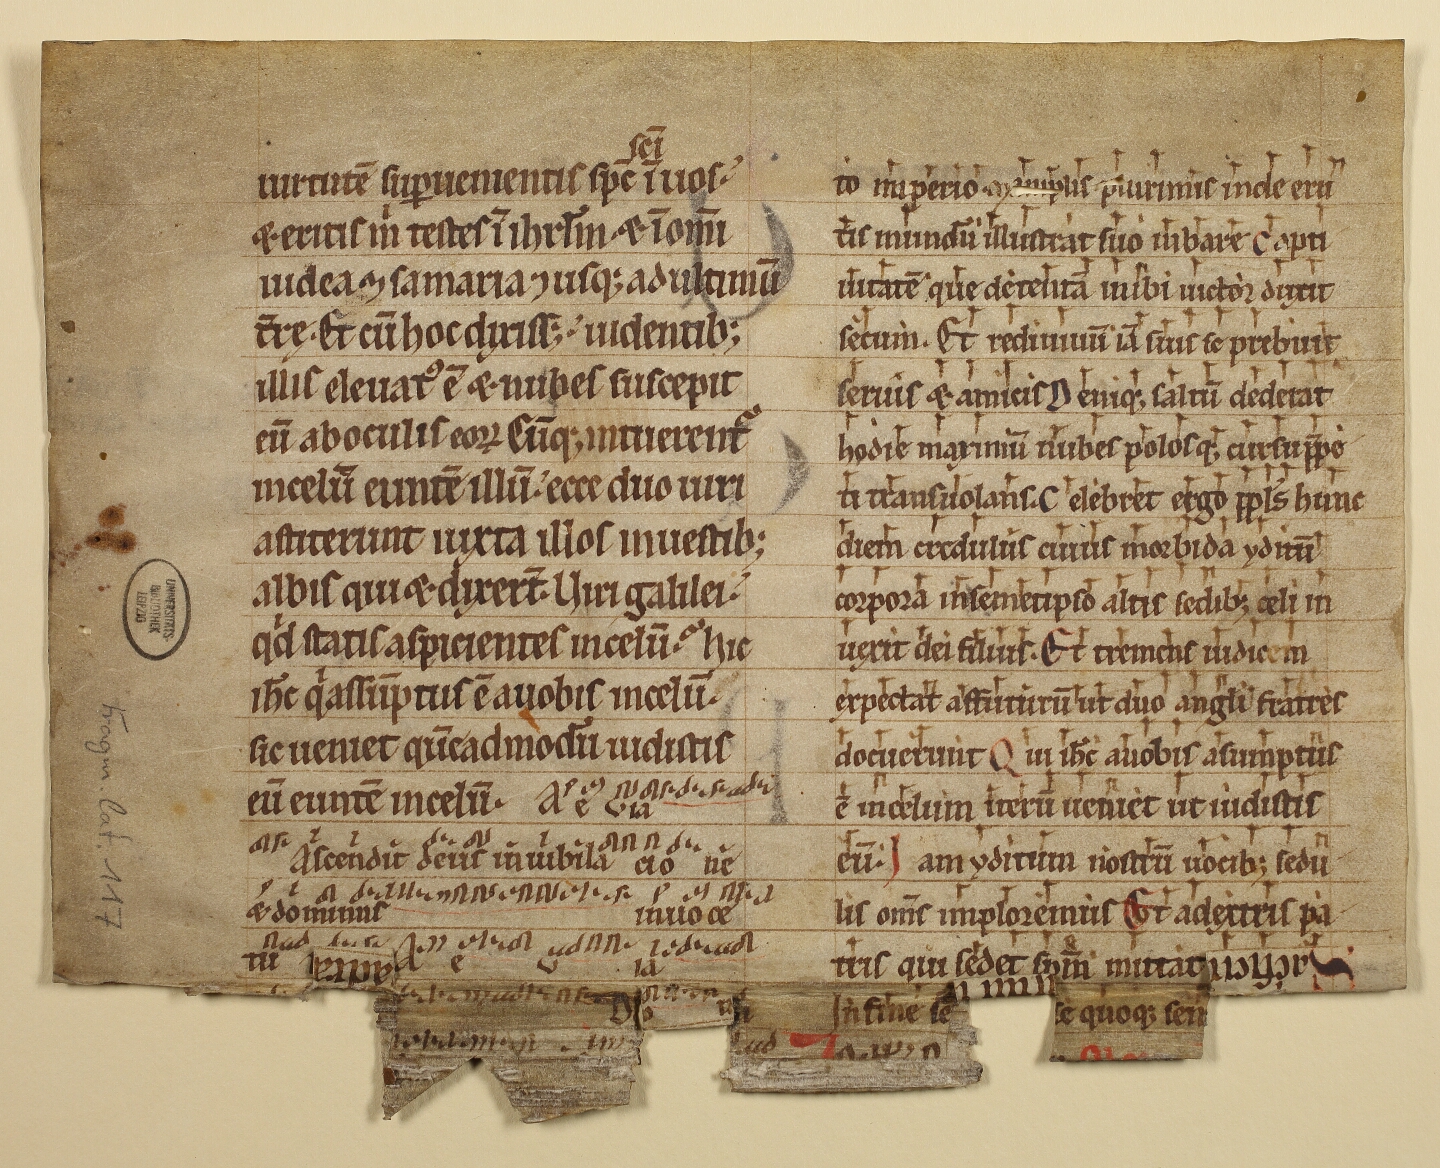 sci
uirtutē supueniētis spc̄ ī uos
& eritis m̄ testes ī ihrlm & ī omī
iudea & samaria & usq; ad ultimū
tr̄e. Et cū hoc dixiss; uidentib;
illis eleuat᷒ ē & nubes suscepit
eū ab oculis eoꝝ Cūq; intuerent᷑
in celū euntē illū. ecce duo uiri
astiterunt iuxta illos in uestib;
albis qui & dixert̄. Uiri galilei
qd statis aspicientes in celū. hic
ihc q assūptus ē a uobis in celū.
sic ueniet quēadmodū uidistis
eū euntē in celū. A e u ia
Ascendit deus in iubila cio ne
& dominus in uo ce
tu A e u ia
to imperio plurimis inde eru
tis mundū illustrat suo iubare Capti
uitatē que detentā iu ibi uictor duxit
secum. Et rediuiuū iā suis se prebuit
seruis & amicis Deniq; saltū dederat
hodie maximū nubes polosq; cursu ꝓpe
ti transuolans. Celebret ergo ppl̄s hunc
diem credulus cuius morbida yditū
corpora in semetipso altis sedib; celi in
uexit dei filius. Et tremens iudicem
expectat affuturū ut duo angli fratres
docuerunt Qui ihc a uobis asumptus
ē in celum iterū ueniet ut uidistis
eū. Iam yditum nostrū uocib; sedu
lis oms imploremus Et a dextris pa
tris qui sedet spm̄ mittat
In fine se
se quoq;
UNIVERSITÄTS
BIBLIOTHEK
LEIPZIG
Fragm. Lat. 117